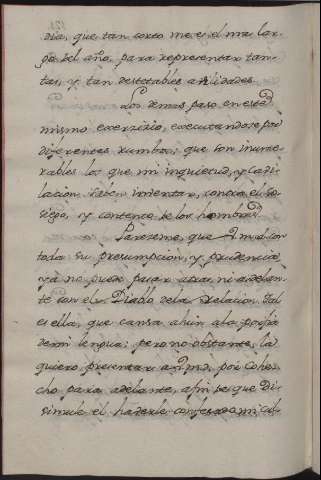 dia, que tan corto me es el mas lar-
go del año, para representar tan-
tas, y tan detestables avilidades.
Los demas paso en este
mismo exerzizio, executandose por
diferentes rumbos; que son inume-
rables los que mi inquietud, y Cabi-
lacion sabe inventar, contra el so-
siego, y contento de los hombres.
Pareseme, que Vmd. con
toda su presumpcion, y prudencia
ya no puede pasar atras, ni adelan-
te con el Diablo de la Relacion. Tal
es ella, que cansa ahun a la porfia
de mi lengua: pero no obstante, la
quiero presentar a Vmd, por Cohe-
cho para adelante, afin de que di-
simule el haverle confesado mi cul-